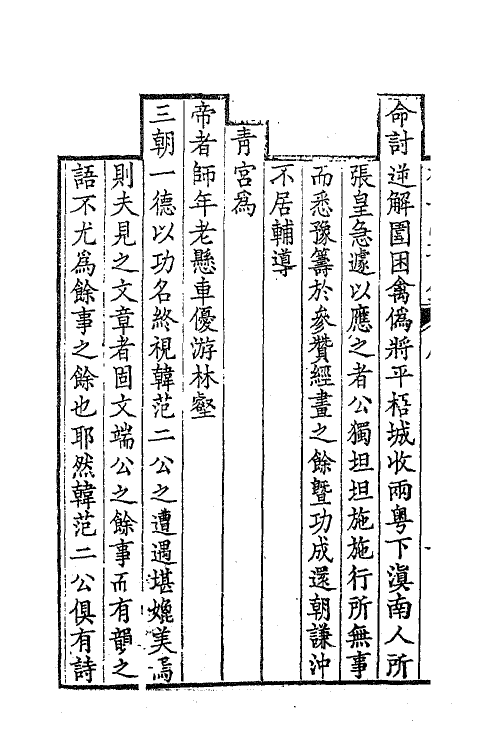 命討逆解圍困禽偽將平梧城收兩粤下滇南人所
張皇急遽以應之者公獨坦坦施施行所無事
而悉豫籌於參贊經畫之餘暨功成還朝謙沖
不居輔導
青宫為
帝者師年老懸車優游林壑
三朝一德以功名終視韓范二公之遭遇堪媲美焉
則夫見之文章者固文端公之餘事而有韻之
語不尤為餘事之餘也耶然韓范二公俱有詩